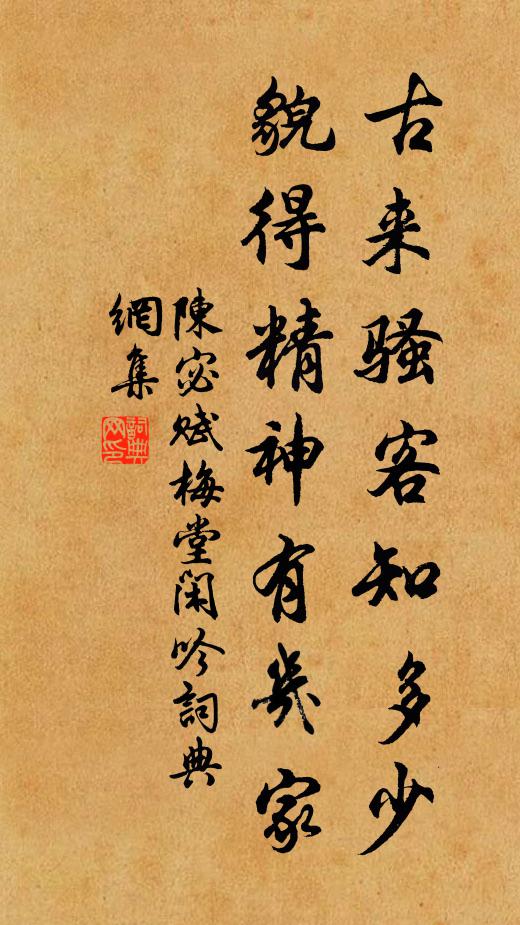 古来骚客知多少
貌得精神有幾家
陳宓赋梅堂閑吟詞典
網集
詞典
网印